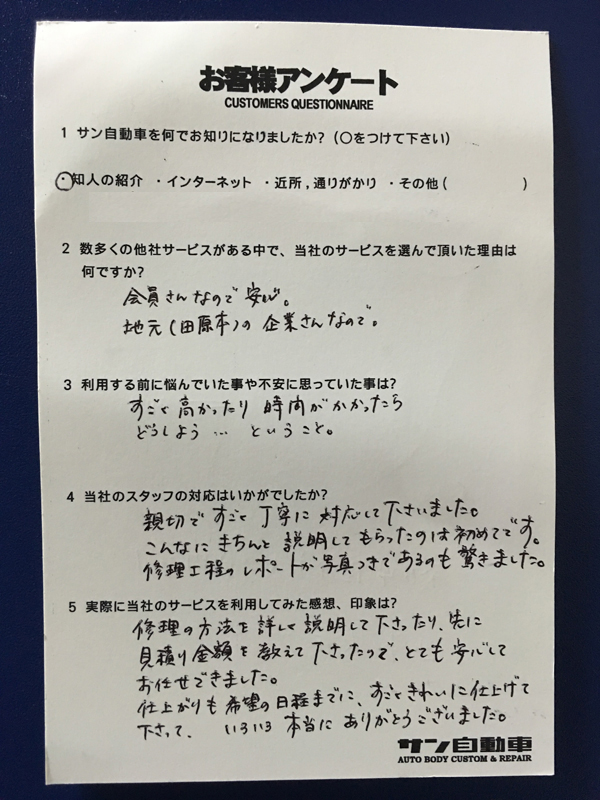 お客様アンケート
CUSTOMERS QUESTIONNAIRE
1 サン自動車を何でお知りになりましたか?(〇をつけて下さい)
・知人の紹介 ・インターネット ・近所,通りがかり ・その他( )
2 数多くの他社サービスがある中で、当社のサービスを選んで頂いた理由は
何ですか?
会員さんなので安心。
地元(田原本)の企業さんなので。
3 利用する前に悩んでいた事や不安に思っていた事は?
すごく高かったり 時間がかかったら
どうしよう… ということ。
4 当社のスタッフの対応はいかがでしたか?
親切ですごく丁寧に対応して下さいました。
こんなにきちんと説明してもらったのは初めてです。
修理工程のレポートが写真つきであるのも驚きました。
5 実際に当社のサービスを利用してみた感想、印象は?
修理の方法を詳しく説明して下さったり、先に
見積り金額を教えて下さったので、とても安心して
お任せできました。
仕上がりも希望の日程までに、すごくきれいに仕上げて
下さって、 いろいろ本当にありがとうございました。
サン自動車
AUTO BODY CUSTOM & REPAIR